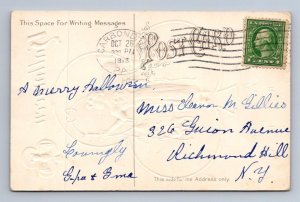 This Space For Writing Messages
POST CARD
OCT 26
1913
A merry Hallowe'en
Lovingly
G'pa & G'ma
Miss Eleanor M. Gillies
326 Guion Avenue
Richmond Hill
N.Y.
This side for the Address only.